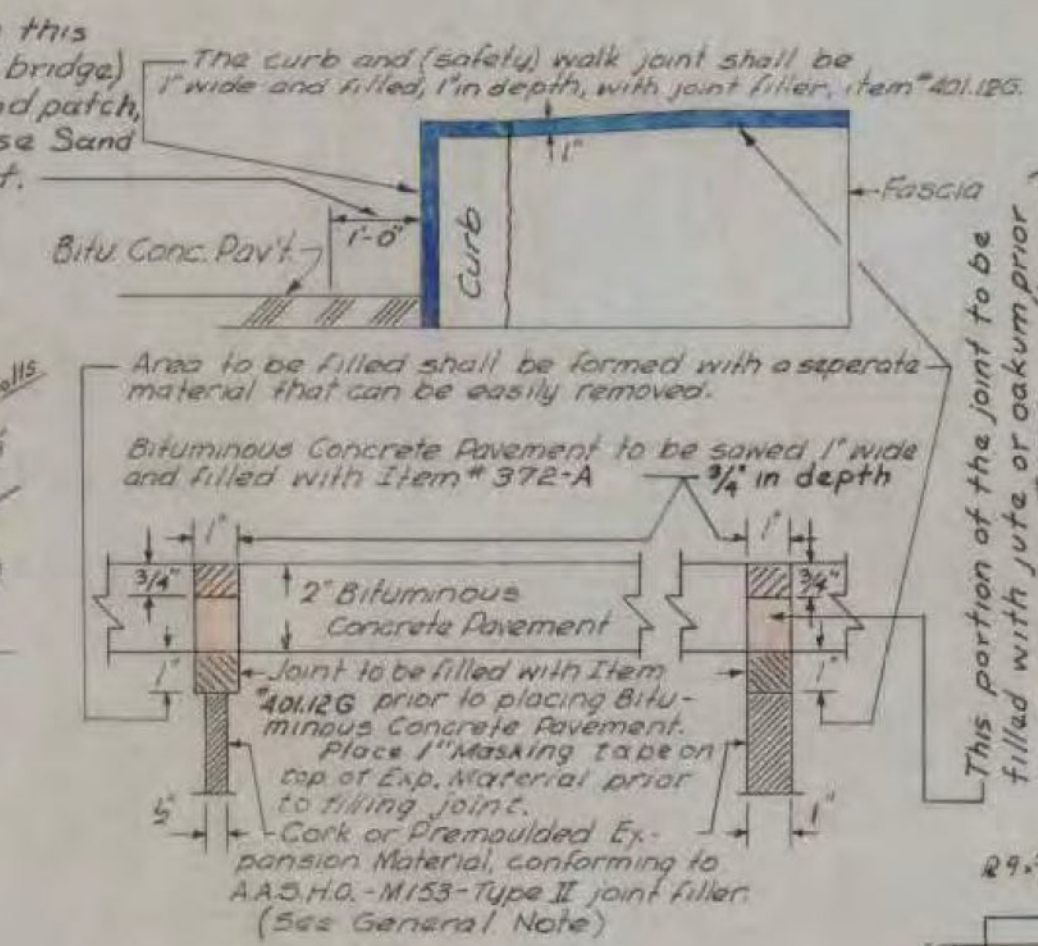 this
bridge)
nd patch,
se Sand
t.
The curb and (safety) walk joint shall be
1" wide and filled, 1" in depth, with joint filler, item #401.12G.
1"
Fascia
1'-0"
Curb
Bitu. Conc. Pav't.
alls
Area to be filled shall be formed with a seperate
material that can be easily removed.
Bituminous Concrete Pavement to be sawed 1" wide
and filled with Item # 372-A 3/4" in depth
1"
1"
3/4"
3/4"
2" Bituminous
Concrete Pavement
1"
1"
Joint to be filled with Item
#401.12G prior to placing Bitu-
minous Concrete Pavement.
Place 1" Masking tape on
top of Exp. Material prior
to filling joint.
1/2"
1"
Cork or Premoulded Ex-
pansion Material, conforming to
A.A.S.H.O. - M153 - Type II joint filler.
(See General Note)
This portion of the joint to be
filled with jute or oakum prior